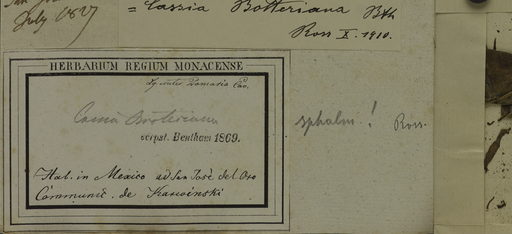 July 1827
= Cassia Botteriana Bth
Ross X. 1910.
HERBARIUM REGIUM MONACENSE
Cassia Botteriana
scrpst. Bentham 1869.
sphalm.! Ross.
Hab. in Mexico ad San José del Oro
Communic. de Karwinski